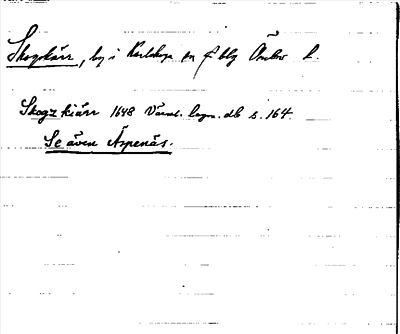 Skogskärr, by i Karlskoga sn o bg Örebro l.
Skogzkiärr 1648 Värml. lagm. db s. 164.
Se även Äspenäs.